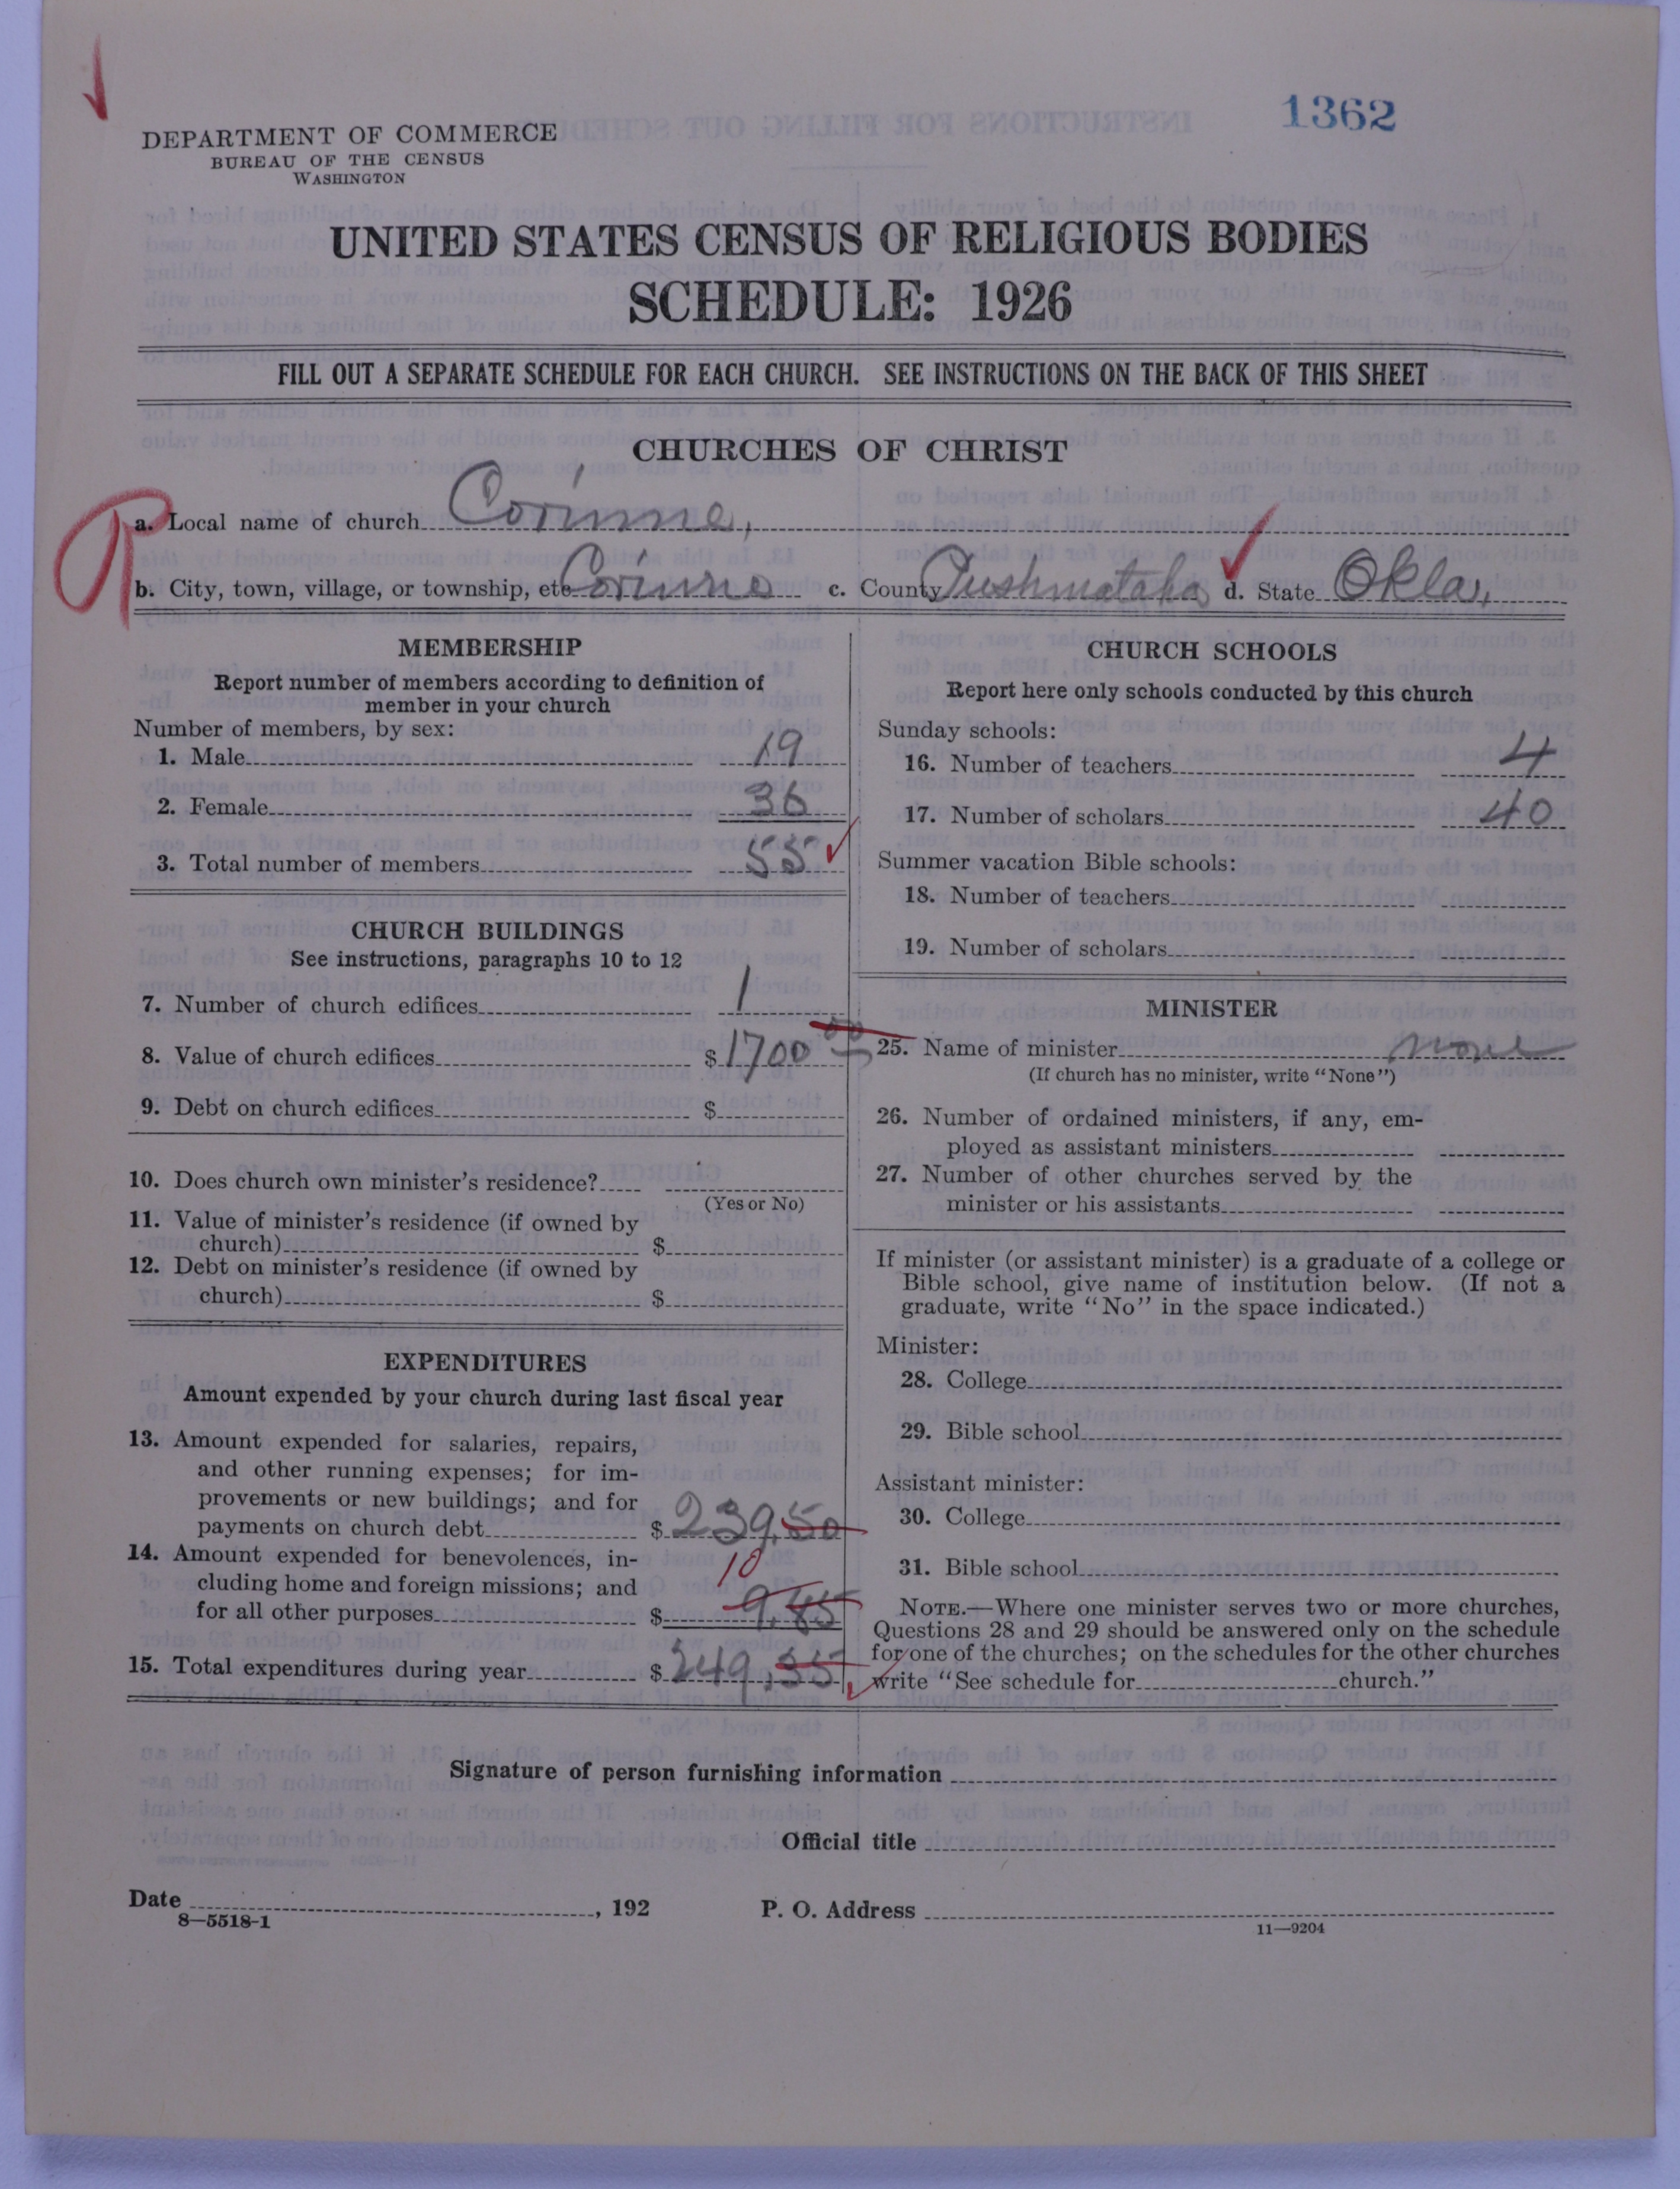 1362
DEPARTMENT OF COMMERCE
BUREAU OF THE CENSUS
WASHINGTON
UNITED STATES CENSUS OF RELIGIOUS BODIES
SCHEDULE: 1926
FILL OUT A SEPARATE SCHEDULE FOR EACH CHURCH. SEE INSTRUCTIONS ON THE BACK OF THIS SHEET
CHURCHES OF CHRIST
a. Local name of church Corinne,
b. City, town, village, or township, etc. Corinne c. County Pushmataha d. State Okla,
MEMBERSHIP
Report number of members according to definition of
member in your church
Number of members, by sex:
1. Male 19
2. Female 36
3. Total number of members 55
CHURCH BUILDINGS
See instructions, paragraphs 10 to 12
7. Number of church edifices 1
8. Value of church edifices $1700 00
9. Debt on church edifices $
10. Does church own minister's residence?
(Yes or No)
11. Value of minister's residence (if owned by
church) $
12. Debt on minister's residence (if owned by
church) $
EXPENDITURES
Amount expended by your church during last fiscal year
13. Amount expended for salaries, repairs,
and other running expenses; for im-
provements or new buildings; and for
payments on church debt $ 239.50
14. Amount expended for benevolences, in-
cluding home and foreign missions; and 10
for all other purposes $ 9.85
15. Total expenditures during year $ 249.35
CHURCH SCHOOLS
Report here only schools conducted by this church
Sunday schools:
16. Number of teachers 4
17. Number of scholars 40
Summer vacation Bible schools:
18. Number of teachers
19. Number of scholars
MINISTER
25. Name of minister none
(If church has no minister, write "None")
26. Number of ordained ministers, if any, em-
ployed as assistant ministers
27. Number of other churches served by the
minister or his assistants
If minister (or assistant minister) is a graduate of a college or
Bible school, give name of institution below. (If not a
graduate, write "No" in the space indicated.)
Minister:
28. College
29. Bible school
Assistant minister:
30. College
31. Bible school
NOTE.—Where one minister serves two or more churches,
Questions 28 and 29 should be answered only on the schedule
for one of the churches; on the schedules for the other churches
write "See schedule for church."
Signature of person furnishing information
Official title
Date , 192 P. O. Address
8—5518-1
11—9204